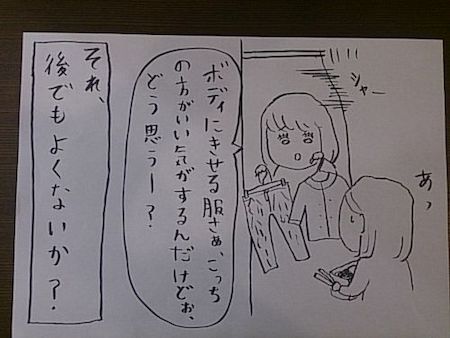 シャー
あっ
ボディにきせる服さぁ、こっち
の方がいい気がするんだけどぉ、
どう思うー？
それ、
後でもよくないか？